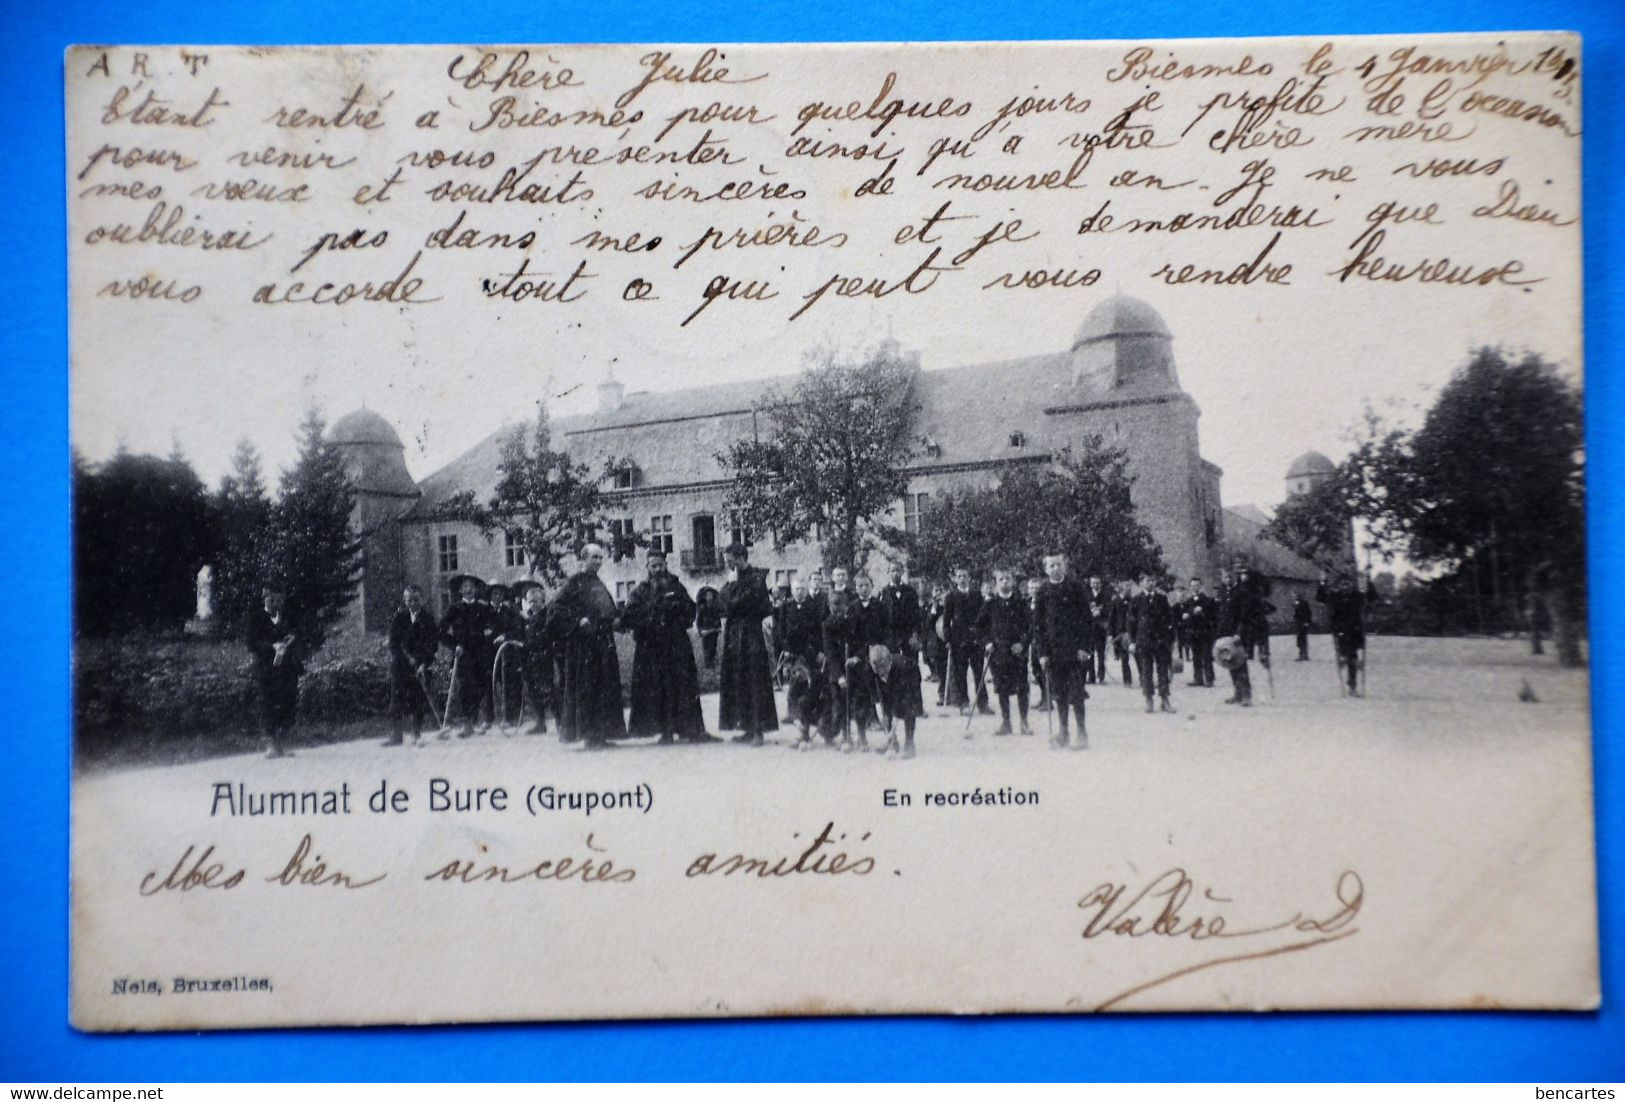 A. R. T Chère Julie Biesmes le 4 Janvier
Étant rentré à Biesmes pour quelques jours je profite de l'occasion
pour venir vous présenter ainsi qu'à votre chère mère
mes vœux et souhaits sincères de nouvel an. Je ne vous
oublierai pas dans mes prières et je demanderai que Dieu
vous accorde tout ce qui peut vous rendre heureuse.
Alumnat de Bure (Grupont) En recréation
Mes bien sincères amitiés.
Valère D
Nels, Bruxelles,
delcampe.net
bencartes